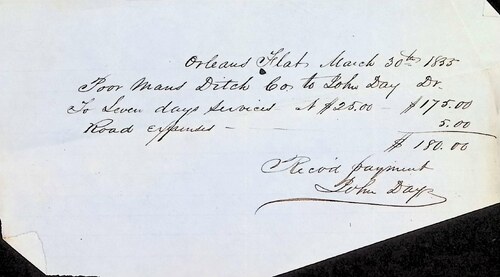 Orleans Flat March 30th 1855
Poor Mans Ditch Co to John Day Dr.
To Seven days services At $25.00 - $175.00
Road expenses - 5.00
$ 180.00
Rec'd payment
John Day